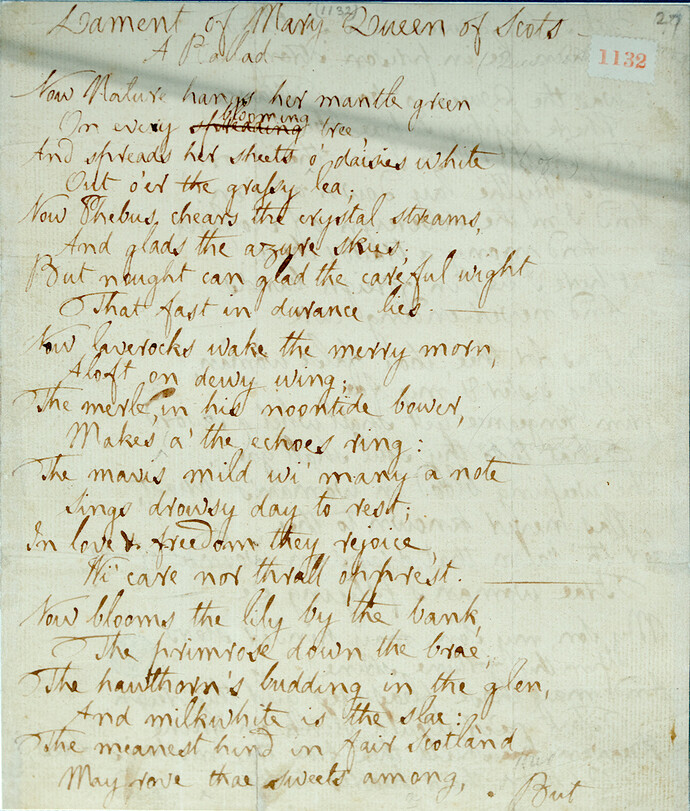 Lament of Mary Queen of Scots
(1132)
27
1132
A Balad
Now Nature hangs her mantle green
blooming
On every spreading tree
And spreads her sheets o' daisies white
Out o'er the grassy lea;
Now Phebus chears the crystal streams,
And glads the azure skies;
But nought can glad the careful wight
That fast in durance lies.
Now laverocks wake the merry morn,
Aloft on dewy wing;
The merle, in his noontide bower,
Makes a' the echoes ring:
The mavis mild wi' many a note
Sings drowsy day to rest;
In love & freedom they rejoice,
Wi' care nor thrall opprest.
Now blooms the lily by the bank,
The primrose down the brae;
The hawthorn's budding in the glen,
And milkwhite is the slae:
The meanest hind in fair Scotland
May rove thae sweets among,
But